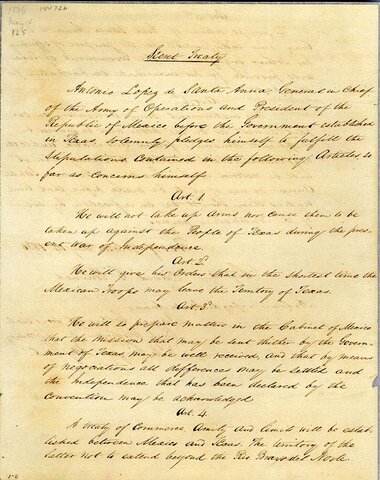 1836 INV 926
May 14
365
Secret Treaty
Antonio Lopez de Santa Anna, General in Chief
of the Army of Operations and President of the
Republic of Mexico before the Government established
in Texas, solemnly pledges himself to fulfill the
Stipulations contained in the following Articles, so
far as concerns himself.
Art. 1.
He will not take up arms nor cause them to be
taken up against the People of Texas during the pres-
ent war of Independence.
Art 2d
He will give his Orders that in the shortest time the
Mexican Troops may leave the Territory of Texas.
Art. 3d
He will so prepare matters in the Cabinet of Mexico
that the Mission that may be sent thither by the Govern-
ment of Texas may be well received, and that by means
of negociations all differences may be settled and
the Independence that has been declared by the
Convention may be acknowledged
Art. 4.
A treaty of Commerce, Amity and limits will be estab-
lished between Mexico and Texas. The territory of the
latter not to extend beyond the Rio Bravo del Norte